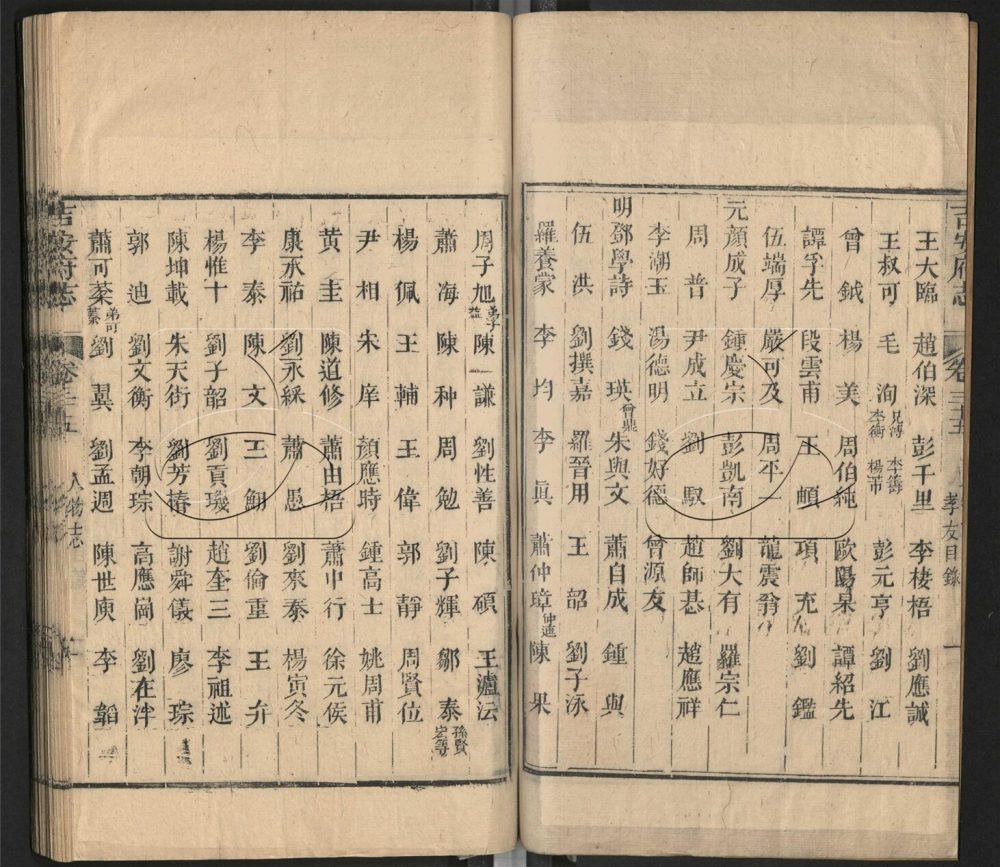 吉安府志 卷三十五 人物志 孝友目錄 一
王大臨 趙伯深 彭千里 李棲梧 劉應誠
王叔可 毛洵 兄溥 李衛 李籌 楊芾 彭元亨 劉江
曾鉞 楊美 周伯純 歐陽杲 譚紹先
譚孚先 段雲甫 王頔 項充 劉鑑
伍端厚 嚴可及 周平一 龍震翁
元 顏成子 鍾慶宗 彭凱南 劉大有 羅宗仁
周普 尹成立 劉馭 趙師基 趙應祥
李潮玉 湯德明 錢好德 曾源友
明 鄧學詩 錢瑛 曾鼎 朱與文 蕭自成 鍾與
伍洪 劉撰嘉 羅晉用 王韶 劉子泳
羅養蒙 李均 李眞 蕭仲璋 仲進 陳果
周子旭 弟子益 陳謙 劉性善 陳碩 王瀘沄
蕭海 陳种 周勉 劉子輝 鄒泰 孫賢 等
楊佩 王輔 王偉 郭靜 周賢位
尹相 朱庠 顏應時 鍾高士 姚周甫
黃圭 陳道修 蕭由梧 蕭中行 徐元俟
康永祐 劉永綵 蕭愚 劉來泰 楊寅冬
李泰 陳文 王翱 劉倫重 王弁
楊惟十 劉子韶 劉貢璣 趙奎三 李祖述
陳坤載 朱天街 劉芳椿 謝舜儀 廖琮
郭迪 劉文衡 李朝琮 高應崗 劉在泮
蕭可棻 弟可 劉翼 劉孟週 陳世庾 李韜
吉安府志 卷三十五 人物志